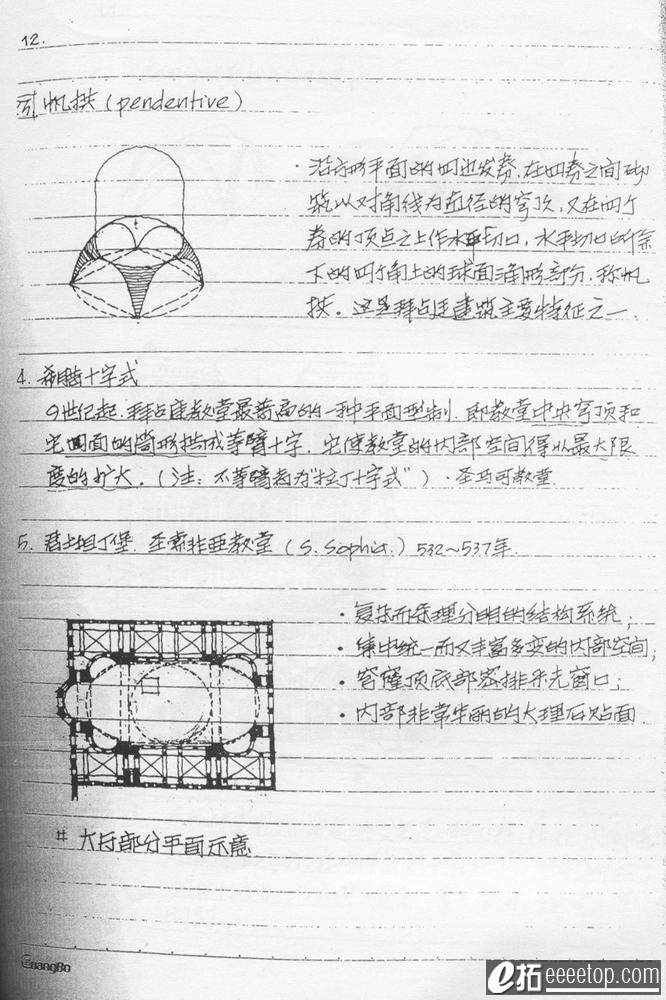 12.
帆拱（pendentive）
· 沿方形平面的四边发券，在四券之间砌
筑以对角线为直径的穹顶，又在四个
券的顶点之上作水平切口，水平切口所余
下的四个角上的球面三角形部分，称帆
拱。这是拜占廷建筑主要特征之一
4. 希腊十字式
9世纪起，拜占庭教堂最普高的一种平面型制，即教堂中央穹顶和
它四面的筒形拱成等臂十字，它使教堂的内部空间得以最大限
度的扩大。（注：不等臂者为“拉丁十字式”）· 圣马可教堂
5. 君士坦丁堡 圣索非亚教堂（S. Sophia.）532~537年
· 复杂而条理分明的结构系统；
· 集中统一而又丰富多变的内部空间；
· 穹窿顶底部密排采光窗口；
· 内部非常华丽的大理石贴面
# 大厅部分平面示意
GuangBo
e拓 eeeetop.com